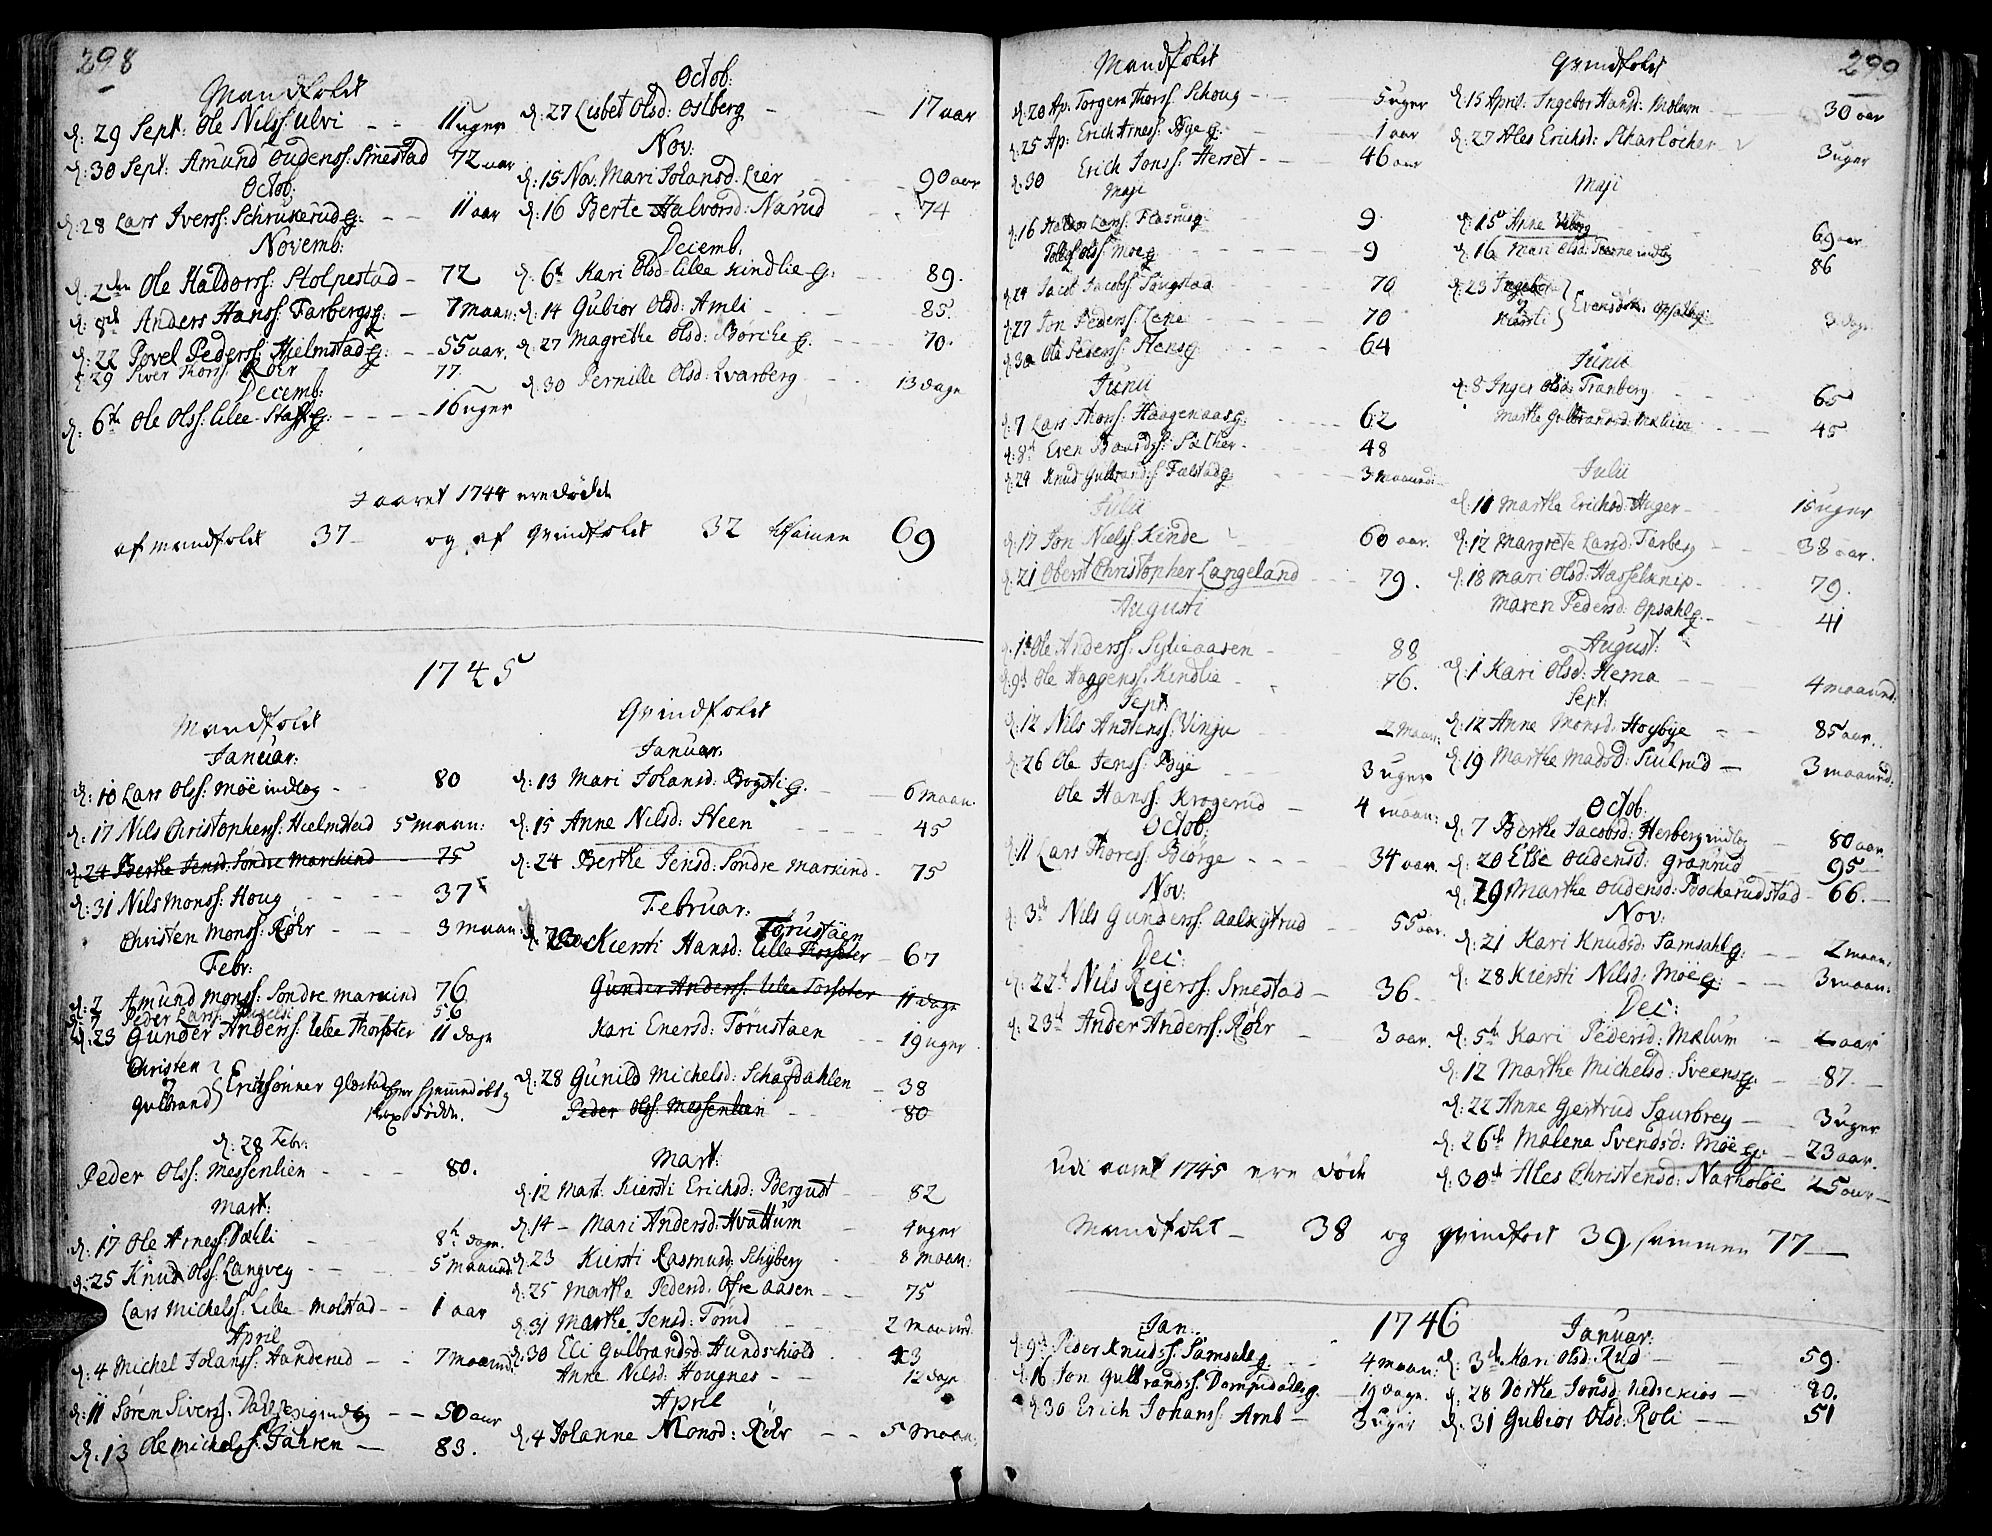 298
Mandfolck
d: 29 Sept: Ole Nilss: Ulvi - - 11 uger
d: 30 Sept: Amund Oudenss: Smestad 72 aar
Octob:
d: 28 Lars Iverss: Schrukerud g: - - 11 aar
Novemb:
d: 2den Ole Haldorss: Stolpestad - 72
d: 8de Anders Hanss: Farbergs g: - 7 maan:
d: 22 Povel Pederss: Hielmstad g: - - 55 aar.
d: 29 Siver Thorss: Røhr 77.
Decemb:
d: 6te Ole Olss: Lille Staff g: - - - - 16 uger
Octob:
d: 27 Lisbet Olsd: Ostberg - - 17 aar
Nov:
d: 15 Nov: Mari Iohansd: Lier - - 90 aar
d: 16 Berte Halvorsd: Narud - 74
Decemb.
d: 6te Kari Olsd: Lille Kindlie g: - - 89.
d: 14 Gubior Olsd: Amli - - 85.
d: 27 Magrethe Olsd: Børche g. - - 70.
d: 30 Pernille Olsd: Qvarberg - - 13 dage
I aaret 1744 ere dødde
af mandfolck 37 - og af qvindfolck 32 tilsamen 69
1745
Mandfolck
Januar:
d: 10 Lars Olss: Møe indlog - - 80
d: 17 Nils Christophers: Hielmstad 5 maan:
d: 24 Berthe Jensd: Søndre Marckind - 75
d: 31 Nils Monss: Houg - - - - 37
Christen Monss: Røhr - - - 3 maan:
Febr:
d: 2 Amund Monss: Søndre Markind 76
Peder Larss: 56
d: 23 Gunder Anderss: Lille Thorsæter 11 dage
Christen
Gulbrand } Erichsønner Glæstad
d: 28 Febr:
Peder Olss: Messenlien - - - 80.
Mart:
d: 17 Ole Arness: Dæhli - - 8te dage.
d: 25 Knud Olss: Langvey - - - 5 maaned:
Lars Michelss: Lille Molstad - - 1 aar
April
d: 4 Michel Iohanss: Handerud - - 7 maaned
d: 11 Søren Siverss: - - 50 aar
d: 13 Ole Michelss: Gahren - 83.
Qvindfolck
Januar.
d: 13 Mari Iohansd: Bøgsti g. - - - 6 maan.
d: 15 Anne Nilsd: Steen - - - - 45
d: 24 Berthe Jensd: Søndre Markind - 75
Februar:
Tørustaen
Kiersti Hansd: Lille Thorsæter - 67
Gunder Anderss: Lille Torsæter - 11 dage
Kari Enersd: Tørustaen - - 19 uger
d: 28 Gunild Michelsd: Schafdahlen - 38
Peder Olss: Messenlien - - 80
Mart:
d: 12 Mart. Kiersti Erichsd: Bergust - - 82
d: 14 - Mari Andersd: Hvattum - 4 uger
d: 23 Kiersti Rasmusd: Schyberg - 8 maan:
d: 25 Marthe Pedersd. Øfre Aasen - - 75
d: 31 Marthe Jensd: Torud - - 2 maaned.
d: 30 Eli Gulbrandsd: Hundschiold . 43
Anne Nilsd: Hougnes - - 12 dage
April
d: 4 Johanne Monsd: Røhr - - 5 maan.
299
Mandfolck
d: 20 Ap: Torgen Thorss: Schoug - - 5 uger
d: 25 Ap: Erich Arness: Bye g. - - 1 aar
d: 30 Erich Jonss: Herset - - - 46 aar
Maji
d: 16 Haldor Larss: - - 9.
Tollef Olss: Moe g. - - - 9
d: 24 Jacob Jacobss: Saugstad - - 70
d: 27 Jon Pederss: Lene - - 70
d: 30 Ole Pederss: Stens g: - - 64
Junii
d: 7 Lars Thorss: Haagenaas g: - - - 62
d: 8de Even Baardss: Sæther - - - 48
d: 24 Knud Gulbrandss: Fælstad g. - - - 3 maaned:
Julii
d: 17 Jon Nielss: Kinde - - 60 aar.
d: 21 Oberst Christopher Langeland - - 79.
Augusti
d: 1te Ole Anderss: Sylieaasen - 88
d: 9de Ole Haggenss: Kindlie - . 76.
Sept:
d: 12 Nils Anstenss: Vinju - - 2 maan:
d: 26 Ole Jenss: Bye - - 3 uger
Ole Hanss: Krogerud - 4 maan:
Octob:
d: 11 Lars Thoress: Biørge - - - - 34 aar.
Nov:
d: 3de Nils Gunderss: Aalsytrud - - 55 aar.
Dec:
d: 22de Nils Rejerss: Smestad - 36 -
d: 23de Ander Anderss: Røhr - - 3 aar.
Qvindfolck
d: 15 April: Ingebor Hansd: Molum - - - 30 aar
d: 27 Ales Erichsd: Skarløcher - 3 uger
Maji
d: 15 Anne - - - 69 aar.
d: 16 Mari Olsd: indlog - - 86
d: 23 Ingebor
Kiersti } Evensdøtr. Opsahl g. 3 dage.
Junii
d: 8 Inger Olsd: Tranberg - - - 65
Marthe Gulbrandsd: - - - 45
Julii
d: 11 Marthe Erichsd: Huger - - 15 uger
d: 12 Margrete Larsd: Farberg - - - 38 aar.
d: 18 Mari Olsd: Hasselknip - - 79.
Maren Pedersd: Opsahl g. - - 41
August:
d: 1 Kari Olsd: Hema - - - 4 maaned:
Sept:
d: 12 Anne Monsd: Høybye - - 85 aar.
d: 19 Marthe Madsd: Sinlrud - - 3 maaned:
Octob:
d: 7 Berthe Jacobsd: Herberg indlog - - 80 aar.
d: 20 Else Oudensd: Granrud - - 95 -
d: 29 Marthe Oudensd: Bocherudstad - 66. -
Nov:
d: 21 Kari Knudsd: Samsahl g: - - 2 maan:
d: 28 Kiersti Nilsd: Møe g: - - 3 maan:
Dec:
d: 5te Kari Pedersd: Mælum - - 2 aar
d: 12 Marthe Michelsd: Sveens g. - 87. -
d: 22 Anne Giertrud Sgurbrey - - 3 uger
d: 26de Malena Svendsd: Møe g. - 23 aar.
d: 30te Ales Christensd: Narholøe 25 aar -
Udi aaret 1745 ere døde
Mandfolck - 38 og qvindfolck 39. sammen 77 -
1746
Jan:
d: 9de Peder Knudss: Samsahl g. - - 4 maan:
d: 16 Jon Gulbrandss: Dompidahls g. - 19 dage.
d: 30 Erich Johanss: Arnt - - 3 uger
Januar:
d: 3de Kari Olsd: Rud - - 59.
d: 28 Dorthe Jonsd: Nedre Kios - 80.
d: 31 Gubior Olsd: Roli - - 51